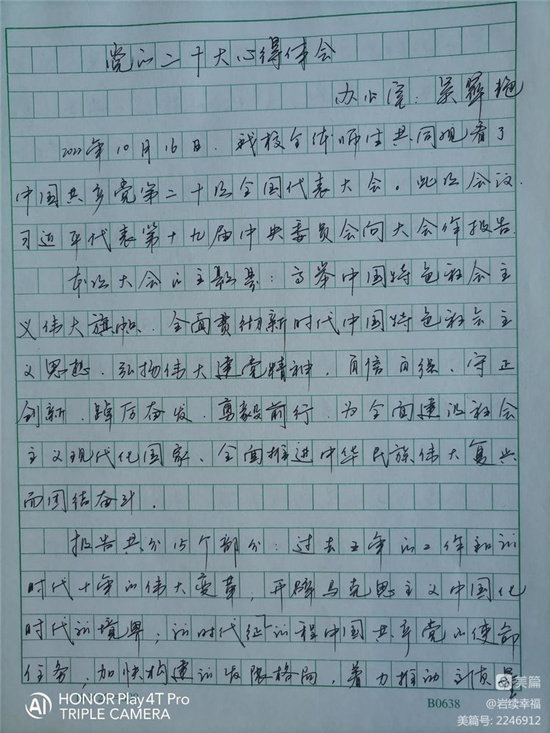 党的二十大心得体会
办公室：吴
2022年10月16日，我校全体师生共同观看了
中国共产党第二十次全国代表大会。此次会议
习近平代表第十九届中央委员会向大会作报告
本次大会的主题是：高举中国特色社会主
义伟大旗帜，全面贯彻新时代中国特色社会主
义思想，弘扬伟大建党精神，自信自强、守正
创新，踔厉奋发、勇毅前行，为全面建设社会
主义现代化国家、全面推进中华民族伟大复兴
而团结奋斗．
报告共分15个部分：过去五年的工作和训
时代十年的伟大变革，开辟马克思主义中国化
时代训境界；训时代征训程中国共产党的使命
任务，加快构建训发展格局，着力推动高质量
HONOR Play4T Pro
TRIPLE CAMERA
B0638
美篇
@岩续幸福
美篇号: 2246912